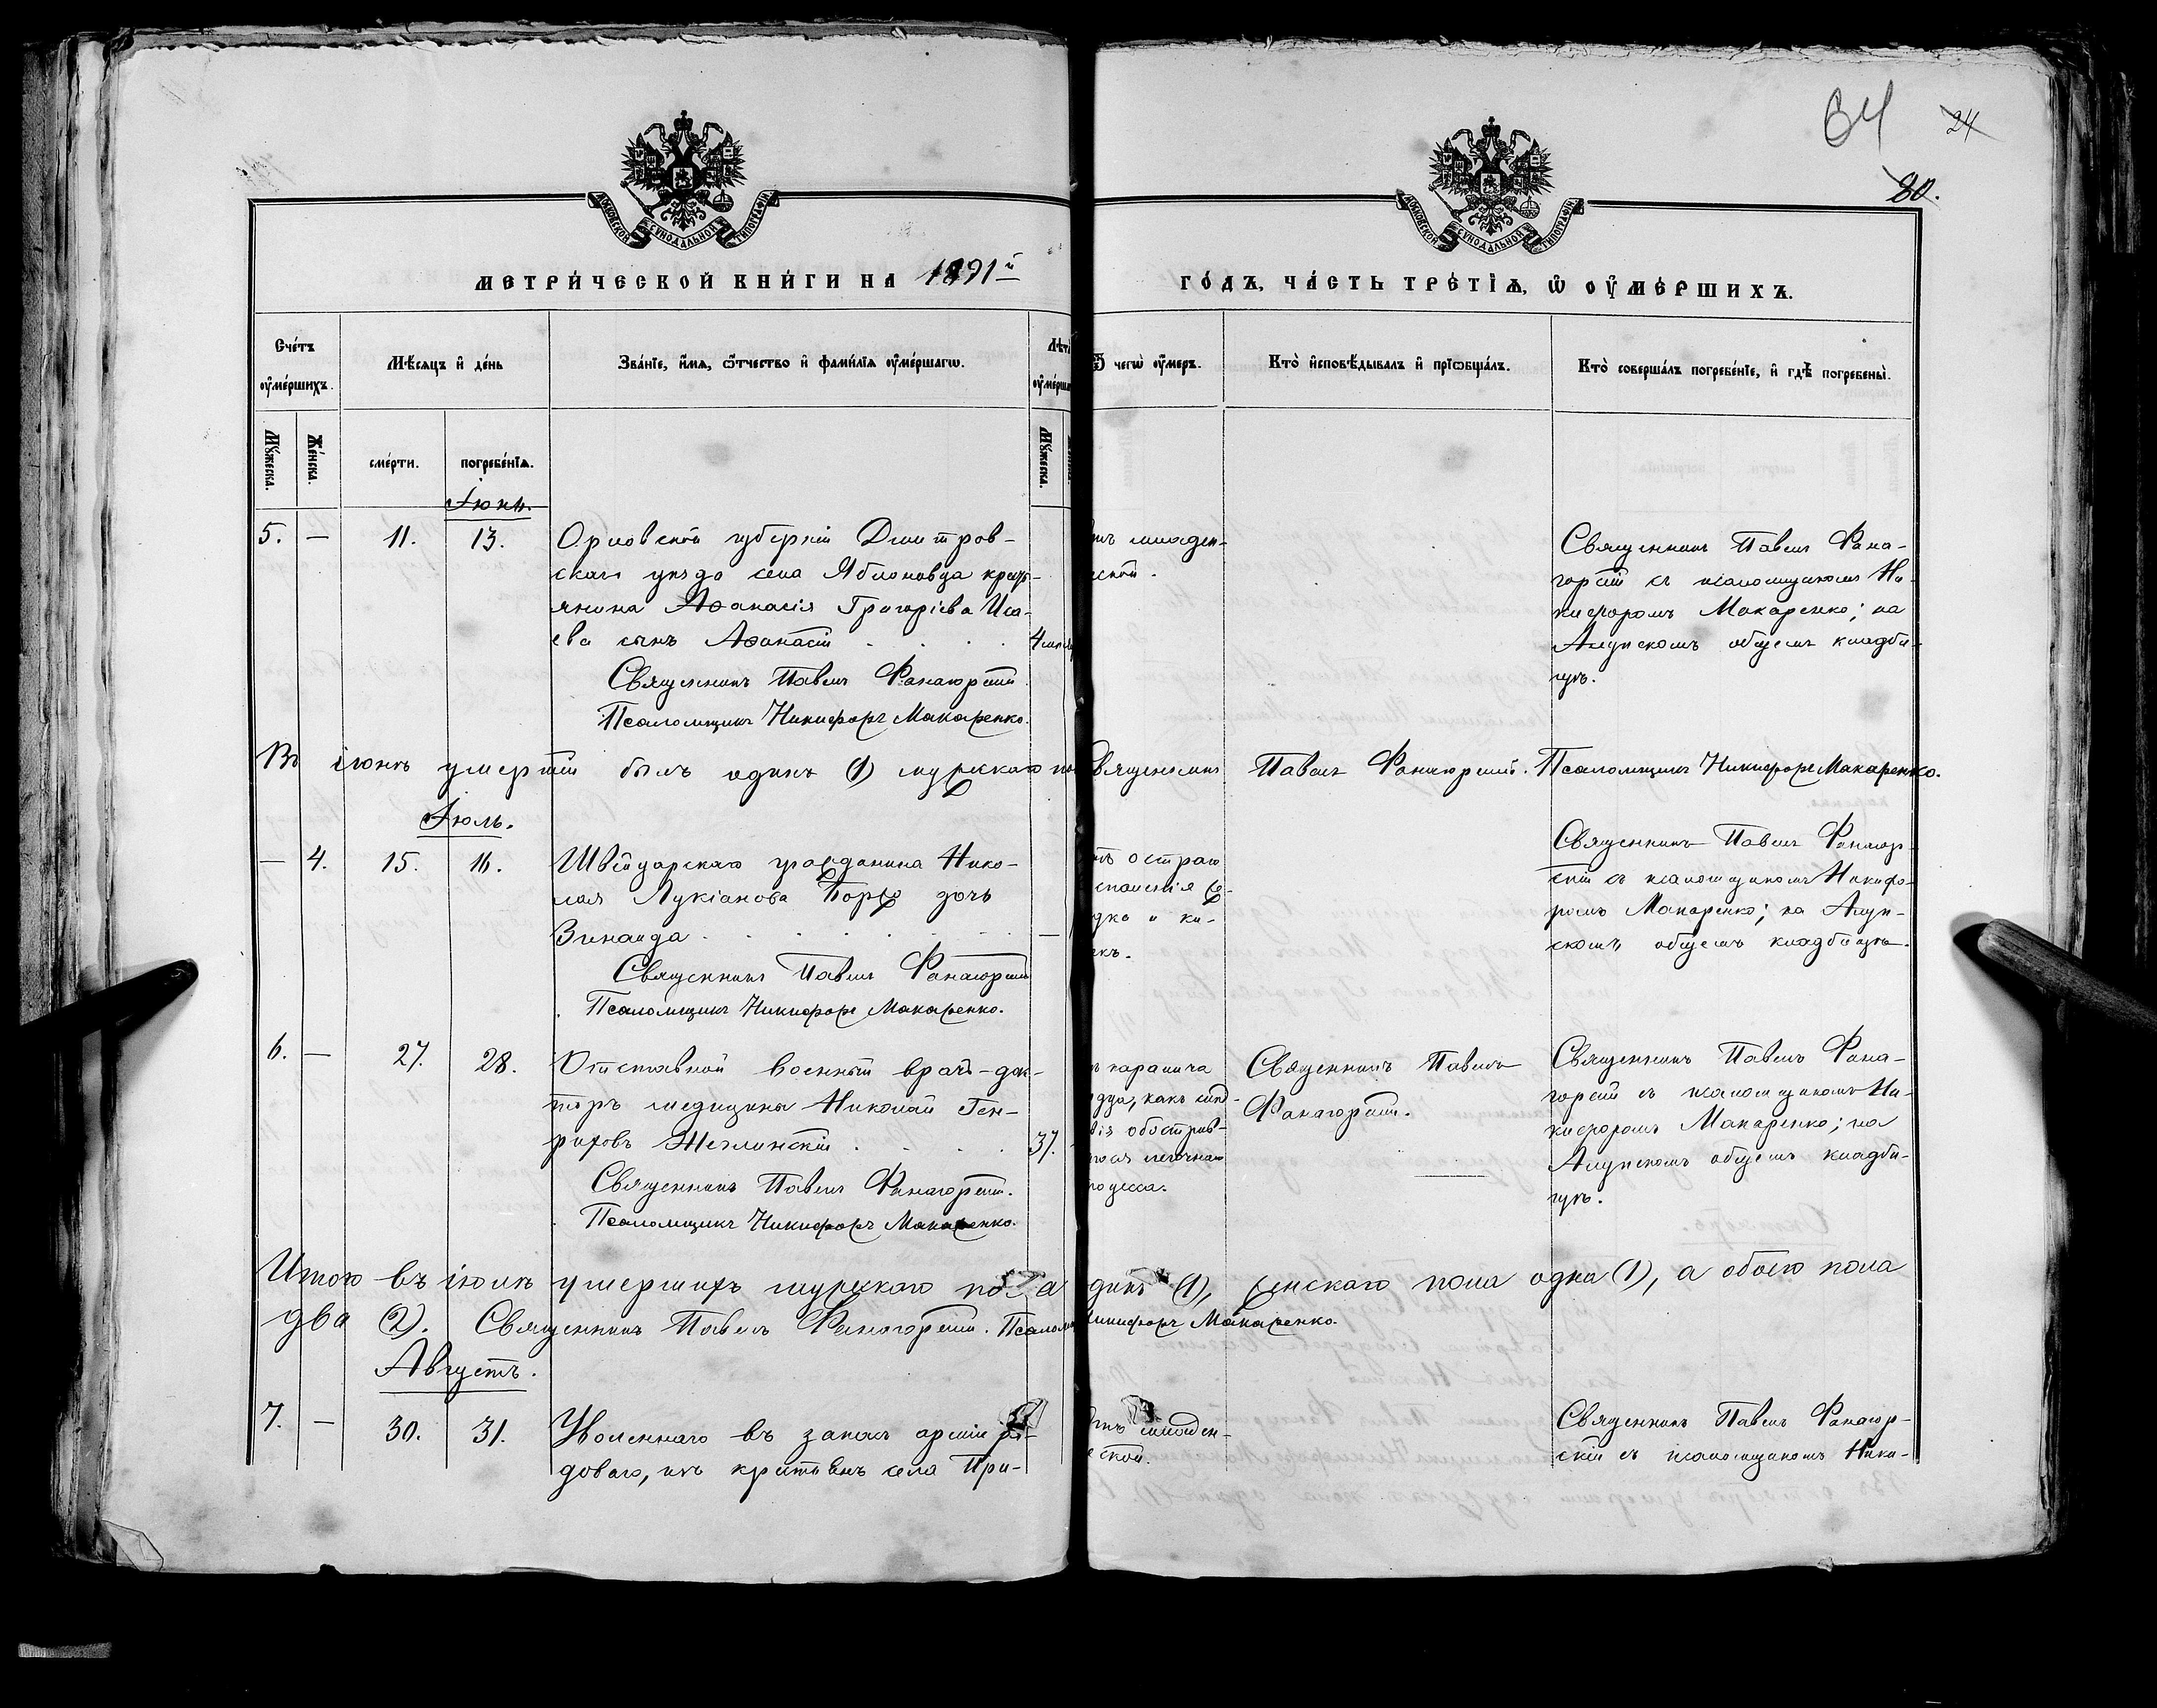 64 24
80.
МОСКОВСКОЙ СѴНОДАЛЬНОЙ ТИПОГРАФІИ
МОСКОВСКОЙ СѴНОДАЛЬНОЙ ТИПОГРАФІИ
МЕТРИ́ЧЕСКОЙ КНИ́ГИ НА 1891й
ГО́ДЪ, ЧА́СТЬ ТРЕ́ТІѦ, Ѡ ОУ҆МЕ́РШИХЪ.
Сче́тъ оу҆ме́ршихъ.
Мѣ́сяцъ и҆ де́нь
Зва́нїе, и҆́мѧ, ѻ҆́тчество и҆ фами́лїѧ оу҆ме́ршагѡ.
Лѣт
оу҆ме́рша
Ѿ чегѡ̀ оу҆́меръ.
Кто̀ и҆сповѣ́дывалъ и҆ прїѡбща́лъ.
Кто̀ соверша́лъ погребе́нїе, и҆ гдѣ̀ погребены̀.
Мꙋ́жеска.
Же́нска.
сме́рти.
погребе́нїѧ.
Мꙋ́жеска.
Іюнь.
5. — 11. 13. Орловской губерніи Дмитров-
скаго уѣзда села Яблоновца кресть-
янина Аѳанасія Григорьева Иса-
ева сынъ Аѳанасій . . . . 4
Священникъ Павелъ Фанагорскій
Псаломщикъ Никифоръ Макаренко.
младен-
ской.
Священникъ Павелъ Фана-
горскій съ псаломщикомъ Ни-
кифоромъ Макаренко; на
Алупскомъ общемъ кладби-
щѣ.
Въ іюнѣ умершій былъ одинъ (1) мужскаго по
вященникъ Павелъ Фанагорскій. Псаломщикъ Никифоръ Макаренко.
Іюль.
— 4. 15. 16. Швейцарскаго гражданина Нико-
лая Лукіанова Боржо дочь
Зинаида . . . . . . —
Священникъ Павелъ Фанагорскій
Псаломщикъ Никифоръ Макаренко.
тъ остраго
спаленія ж-
дка и ки-
къ.
Священникъ Павелъ Фанагор-
скій съ псаломщикомъ Никифо-
ромъ Макаренко; на Алуп-
скомъ общемъ кладбищѣ.
6. — 27. 28. Отставной военный врачъ-док-
торъ медицины Николай Ген-
риховъ Жеглинскій . . . . 37.
Священникъ Павелъ Фанагорскій.
Псаломщикъ Никифоръ Макаренко.
ъ паралича
дца, какъ слѣд-
вія обострив-
гося легочнаго
роцесса.
Священникъ Павелъ
Фанагорскій.
Священникъ Павелъ Фана-
горскій съ псаломщикомъ Ни-
кифоромъ Макаренко; на
Алупскомъ общемъ кладби-
щѣ.
Итого въ іюлѣ умершихъ мужскаго пола
динъ (1), женскаго пола одна (1), а обоего пола
два (2). Священникъ Павелъ Фанагорскій. Псалом
Никифоръ Макаренко.
Августъ.
7. — 30. 31. Уволеннаго въ запасъ арміи ря-
доваго, изъ крестьянъ села При-
тъ младен-
ской.
Священникъ Павелъ Фанагор-
скій съ псаломщикомъ Ники-